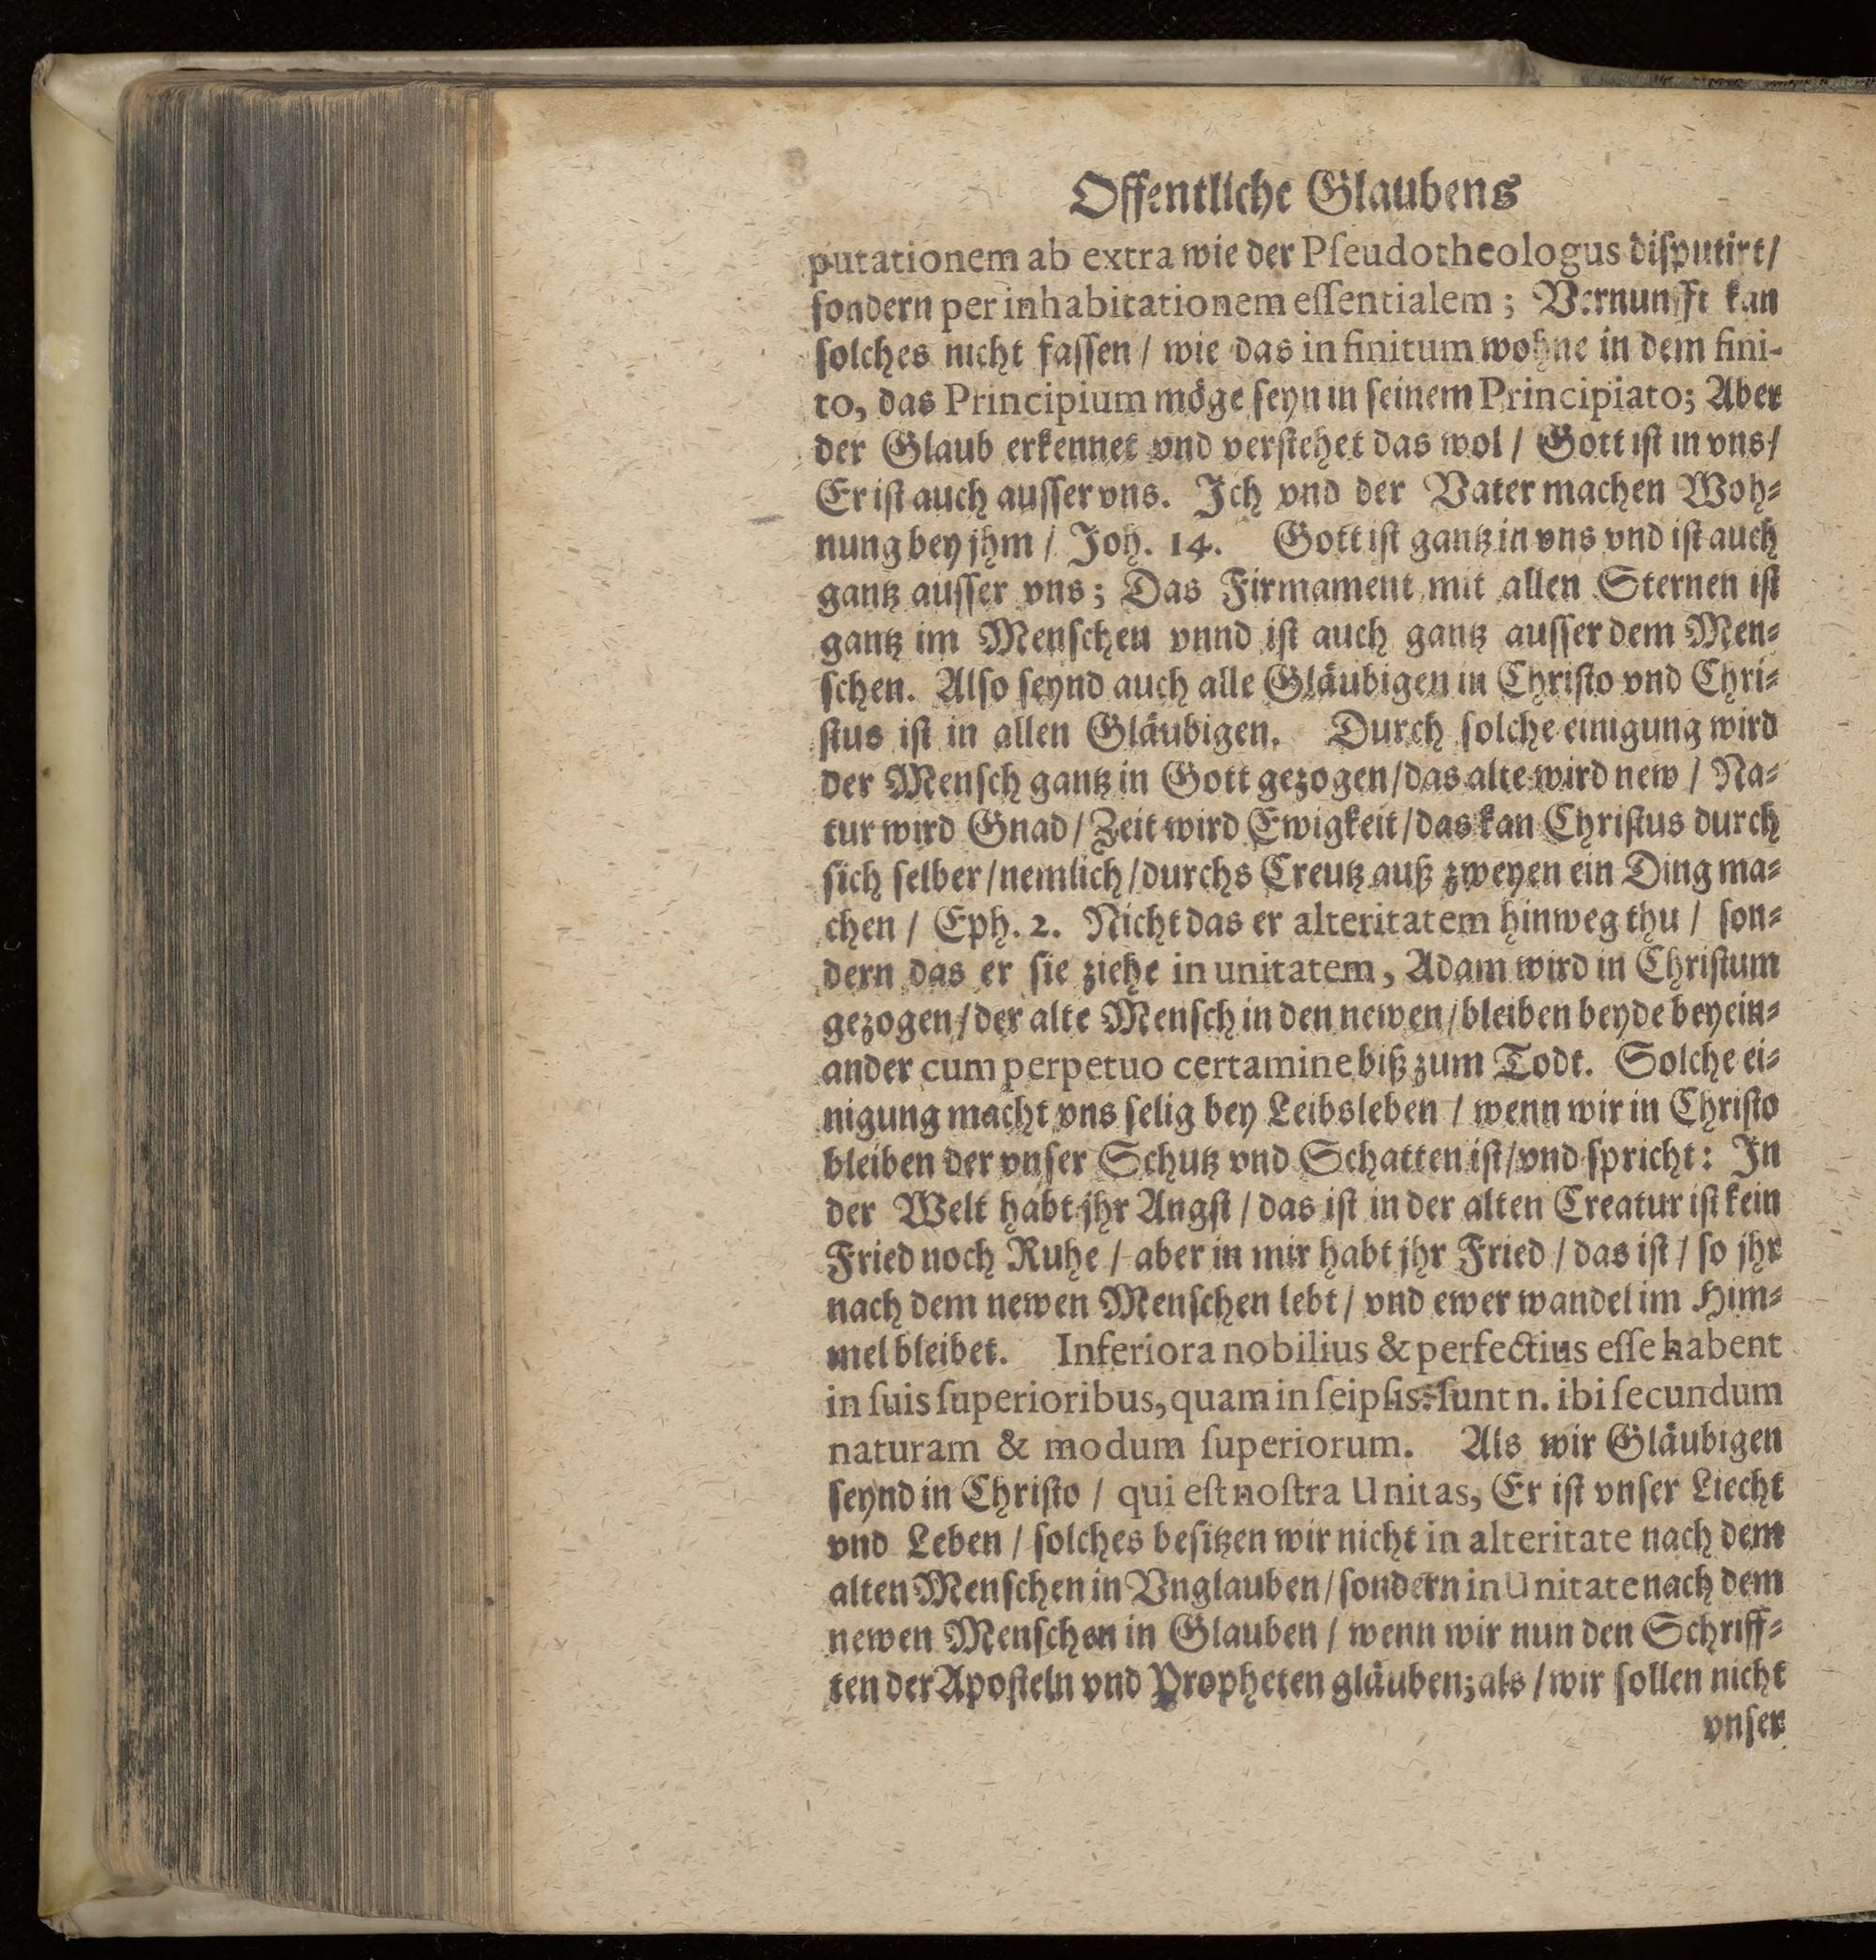 Offentliche Glaubens
putationem ab extra wie der Pſeudotheologus diſputirt/
ſondern per inhabitationem eſſentialem; Vernunfft kan
ſolches nicht faſſen / wie das infinitum wohne in dem fini-
to, das Principium möge ſeyn in ſeinem Principiato; Aber
der Glaub erkennet vnd verſtehet das wol / Gott iſt in vns /
Er iſt auch auſſer vns. Ich vnd der Vater machen Woh-
nung bey jhm / Joh. 14. Gott iſt gantz in vns vnd iſt auch
gantz auſſer vns; Das Firmament mit allen Sternen iſt
gantz im Menſchen vnnd iſt auch gantz auſſer dem Men-
ſchen. Alſo ſeynd auch alle Gläubigen in Chriſto vnd Chri-
ſtus iſt in allen Gläubigen. Durch ſolche einigung wird
der Menſch gantz in Gott gezogen / das alte wird new / Na-
tur wird Gnad / Zeit wird Ewigkeit / das kan Chriſtus durch
ſich ſelber / nemlich / durchs Creutz auß zweyen ein Ding ma-
chen / Eph. 2. Nicht das er alteritatem hinweg thu / ſon-
dern das er ſie ziehe in unitatem, Adam wird in Chriſtum
gezogen / der alte Menſch in den newen / bleiben beyde beyein-
ander cum perpetuo certamine biß zum Todt. Solche ei-
nigung macht vns ſelig bey Leibsleben / wenn wir in Chriſto
bleiben der vnſer Schutz vnd Schatten iſt / vnd ſpricht: In
der Welt habt jhr Angſt / das iſt in der alten Creatur iſt kein
Fried noch Ruhe / aber in mir habt jhr Fried / das iſt / ſo jhr
nach dem newen Menſchen lebt / vnd ewer wandel im Him-
mel bleibet. Inferiora nobilius & perfectius eſſe habent
in ſuis ſuperioribus, quam in ſeipſis: ſunt n. ibi ſecundum
naturam & modum ſuperiorum. Als wir Gläubigen
ſeynd in Chriſto / qui eſt noſtra Unitas, Er iſt vnſer Liecht
vnd Leben / ſolches beſitzen wir nicht in alteritate nach dem
alten Menſchen in Vnglauben / ſondern in Unitate nach dem
newen Menſchen in Glauben / wenn wir nun den Schriff-
ten der Apoſteln vnd Propheten gläuben; als / wir ſollen nicht
vnſer